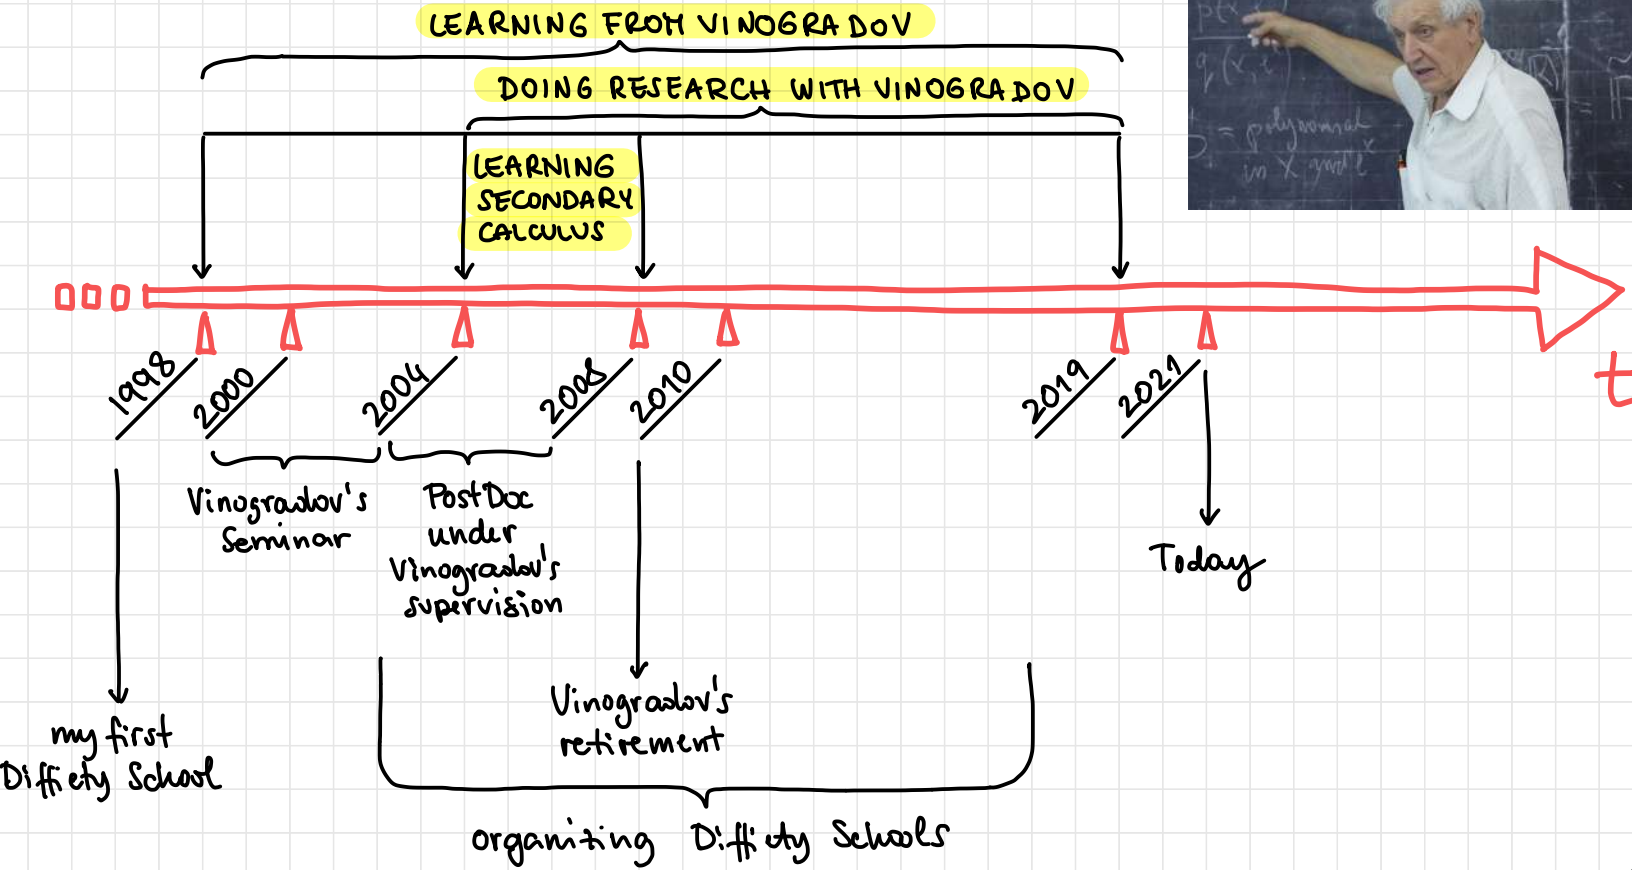 LEARNING FROM VINOGRADOV
DOING RESEARCH WITH VINOGRADOV
LEARNING
SECONDARY
CALCULUS
q(x,t)
= polynomial
in x and t
1998
2000
2004
2008
2010
2019
2021
t
Vinogradov's
Seminar
PostDoc
under
Vinogradov's
supervision
Today
Vinogradov's
retirement
my first
Diffiety School
organizing Diffiety Schools